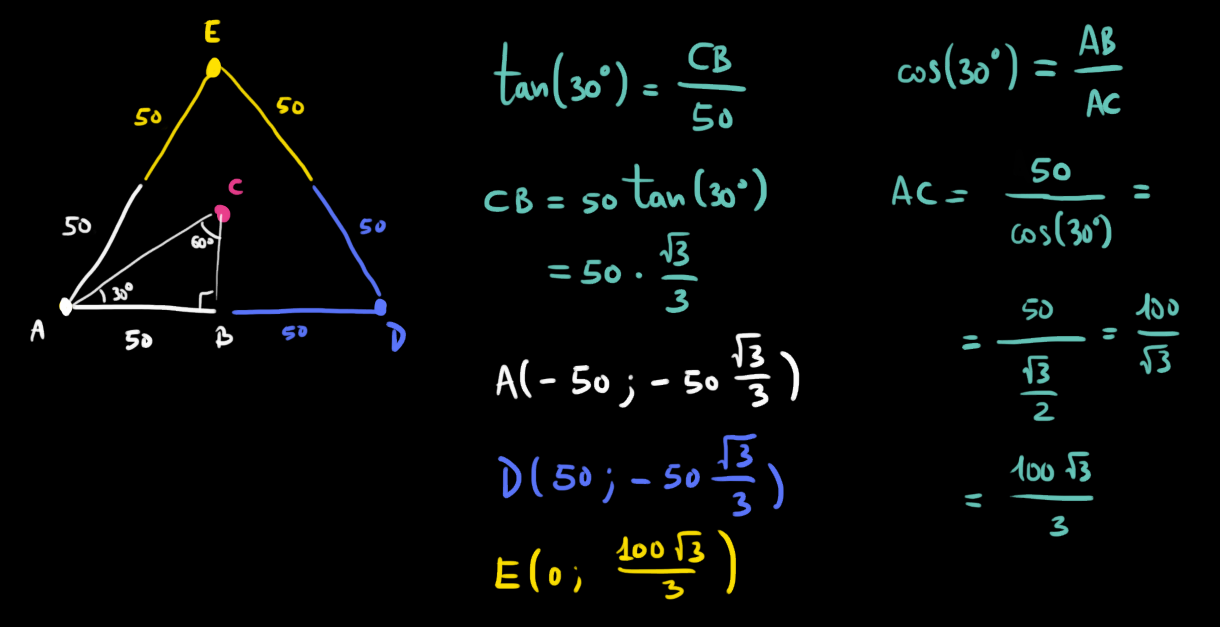 E
50
50
C
50
60°
50
30°
A
50
B
50
D
tan(30°) = CB/50
CB = 50 tan(30°)
= 50 · √3/3
A(-50; -50 √3/3)
D(50; -50 √3/3)
E(0; 100√3/3)
cos(30°) = AB/AC
AC = 50/cos(30°) =
= 50/(√3/2) = 100/√3
= 100√3/3